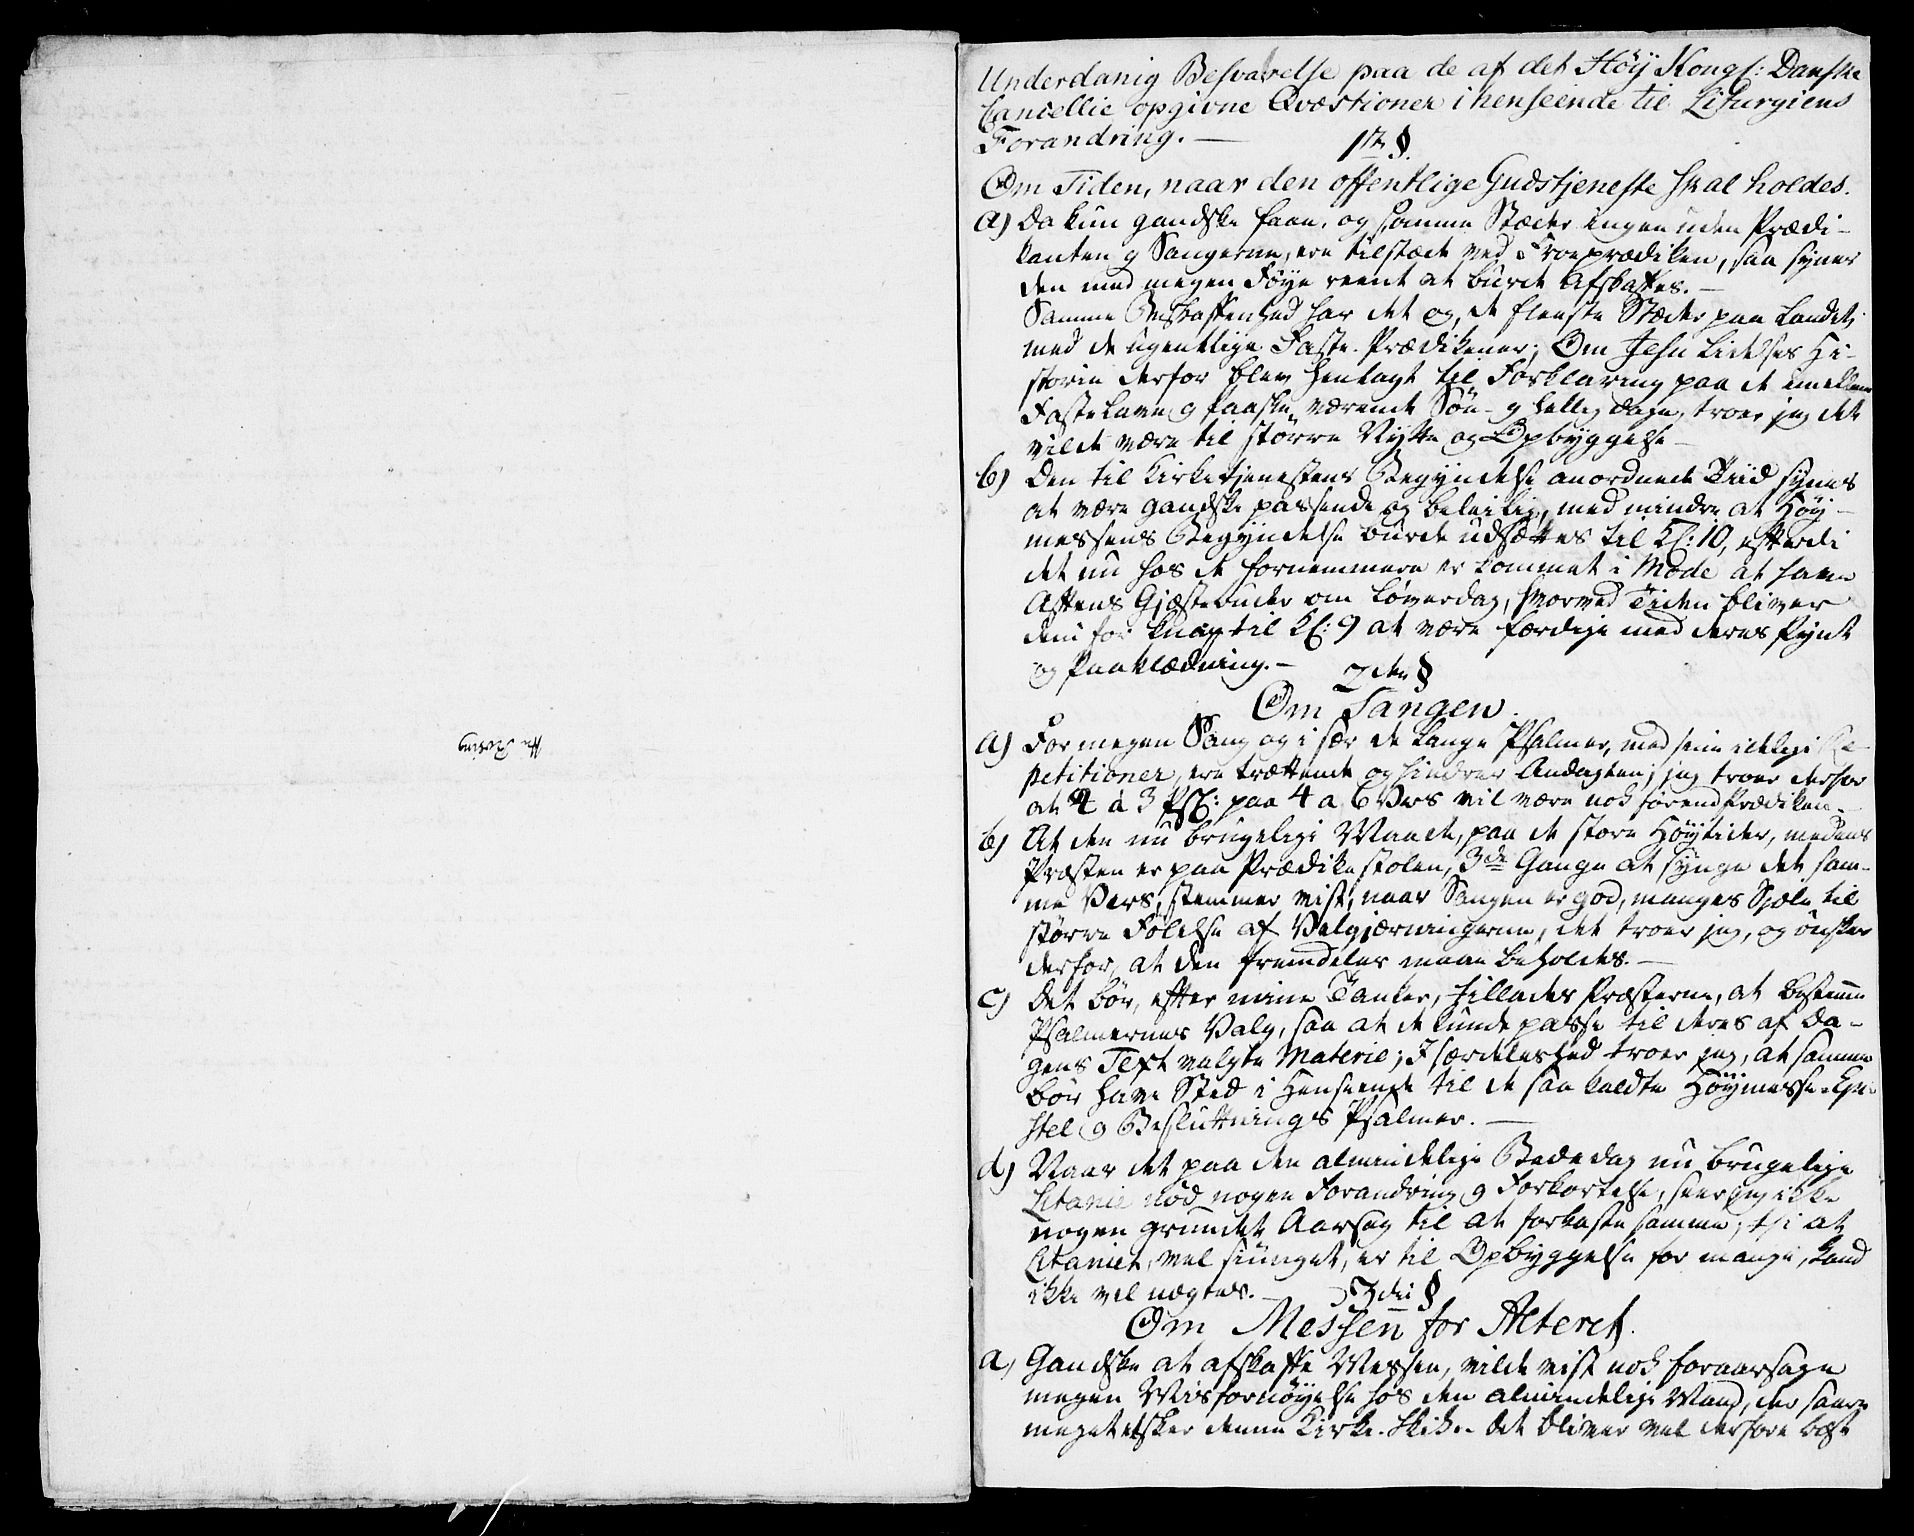 Underdanig Besvarelse paa de af det Høy Kongl: Danske
Cancellie opgivne Qvæstioner i henseende til Liturgiens
Forandring. —
1te §.
Om Tiden, naar den offentlige Gudstjeneste skal holdes.
a) Da kun gandske faae, og somme Stæder ingen uden Prædi-
kanten og Sangerne, ere tilstæde ved Froeprædiken, saa synes
den med megen Føye reent at burde Afskaffes. —
Samme Beskaffenhed har det og, de fleeste Stæder paa Landet,
med de ugentlige Faste-Prædikener; Om Jesu Lidelses Hi-
storie derfor blev henlagt til Forklaring paa de imellem
Fastelavn og Paaske værende Søn- og hellig dage, troer jeg det
vilde være til større Nytte og Opbyggelse —
b) Den til Kirketjenestens Begyndelse anordnede Tiid synes
at være gandske passende og beleilig, med mindre at Høy-
messens Begyndelse burde udsættes til Kl: 10, efterdi
det nu hos de fornemmere er kommet i Mode at have
Aftens Gjæstebuder om Løverdag, hvorved Tiden bliver
dem for knap til Kl: 9 at være færdige med deres Pynt
og Paaklædning. —
2den §
Om Sangen.
a) For megen Sang og i sær de lange Psalmer, med sine idelige Re-
petitioner, ere trættende og hindrer Andagten; jeg troer derfor
at 2 à 3 Psl: paa 4 a 6 Vers vil være nok førend Prædiken. —
b) At den nu brugelige Maade, paa de store Høytider, medens
Præsten er paa Prædikestolen, 3de Gange at synge det sam-
me Vers, stemmer vist, naar Sangen er god, manges Sjæle til
større Følelse af Velgjærningerne, det troer jeg, og ønsker
derfor, at den fremdeles maae beholdes. —
c) Det bør, efter mine Tanker, tillades Præsterne, at bestemme
Psalmernes Valg, saa at de kunde passe til deres af Da-
gens Text valgte Materie; I særdeleshed troer jeg, at samme
bør have Sted i Henseende til de saa kaldte Høymesse- Epi-
stel og Beslutnings Psalmer. —
d) Naar det paa den almindelige Bededag nu brugelige
Litanie nød nogen Forandring og Forkortelse, seer jeg ikke
nogen grundet Aarsag til at forkaste samme; thi at
Litaniet, vel siunget, er til Opbyggelse for mange, kand
ikke vel nægtes. —
3die §
Om Messen for Alteret.
a, Gandske at afskaffe Messen, vilde vist nok foraarsage
megen Misfornøyelse hos den almindelige Mand, der saare
meget elsker denne Kirke-Skik. - Det bliver vel derfore best